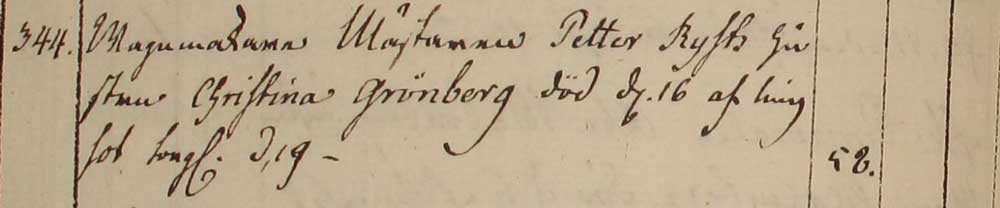 344. Wagnmakare Mästaren Petter Rysts Hu
strn Christina Grönberg död d. 16 af lung
sot d. 19 – 58.